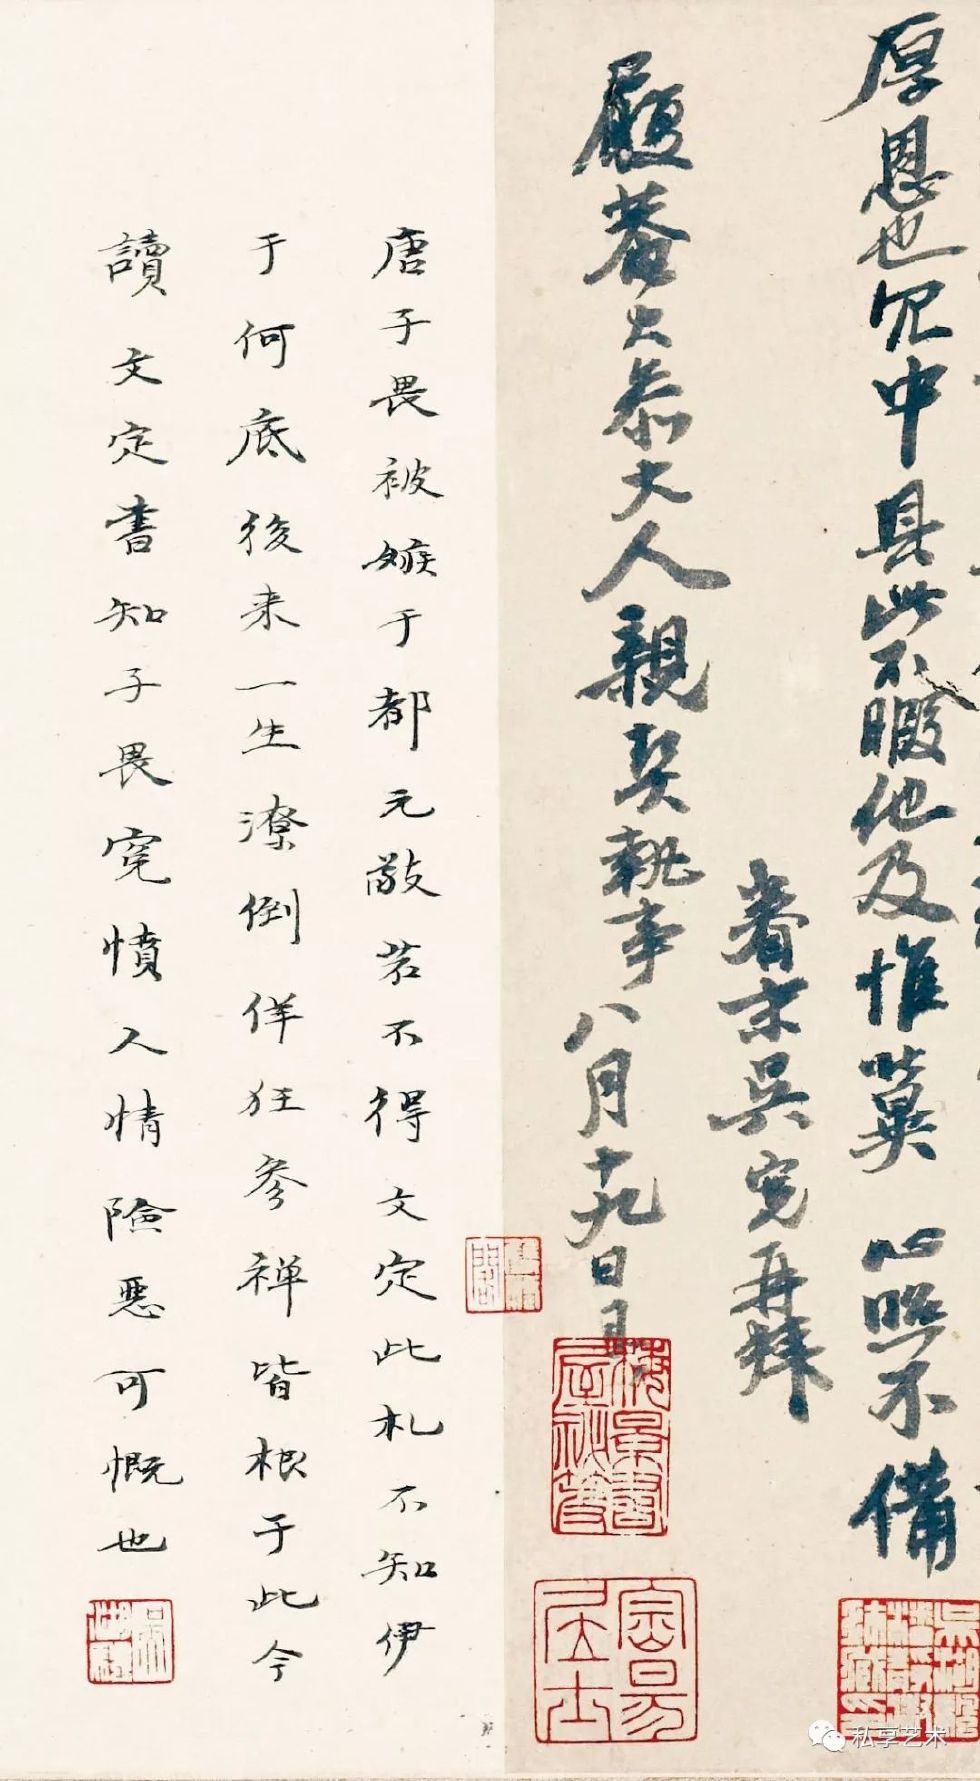 厚恩也冗中具此不暇他及惟冀
心照不備
眷末吳寬再拜
履菴大叅大人親契執事八月十九日具
唐子畏被嫉于都元敬若不得文定此札不知伊
于何底後来一生潦倒佯狂參禅皆根于此今
讀文定書知子畏寃憤人情險惡可慨也
梅景書屋祕笈
密昜居士
私享艺术